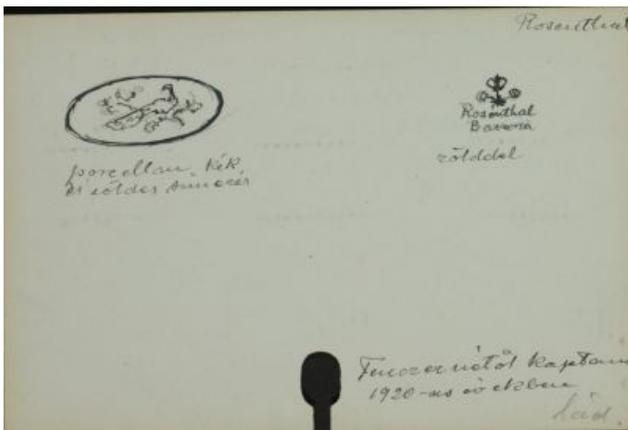 Rosenthal
Rosenthal
Bavaria
zölddel
porcellan. kék
és zöldes színezés
kaptam
1920-as években